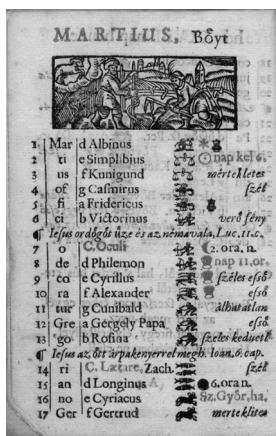 MARTIUS, Bőyt
1 Mar d Albinus
2 ti e Simplibius nap kel 6.
3 us f Kunigund mértekletes
4 of g Casmirus szél
5 fi a Fridericus
6 ci b Victorinus verő fény
¶ Iesus ördögöt űze és az néma vala, Luc. 11. c.
7 o C. Oculi 2. ora n.
8 de d Philemon nap 11. or.
9 co e Cyrillus széles eső
10 ra f Alexander eső
11 tur g Cunibald álhatatlan
12 Gre a Gergely Papa eső
13 go b Rosina szeles kedvetl
¶ Iesus az ött árpa kenyerrel megh. Ioan. 6. cap.
14 ri C. Lætare, Zach. szél
15 an d Longinus 6. ora n.
16 no e Cyriacus Sz. Győr, ha.
17 Ger f Gertrud mertekletes